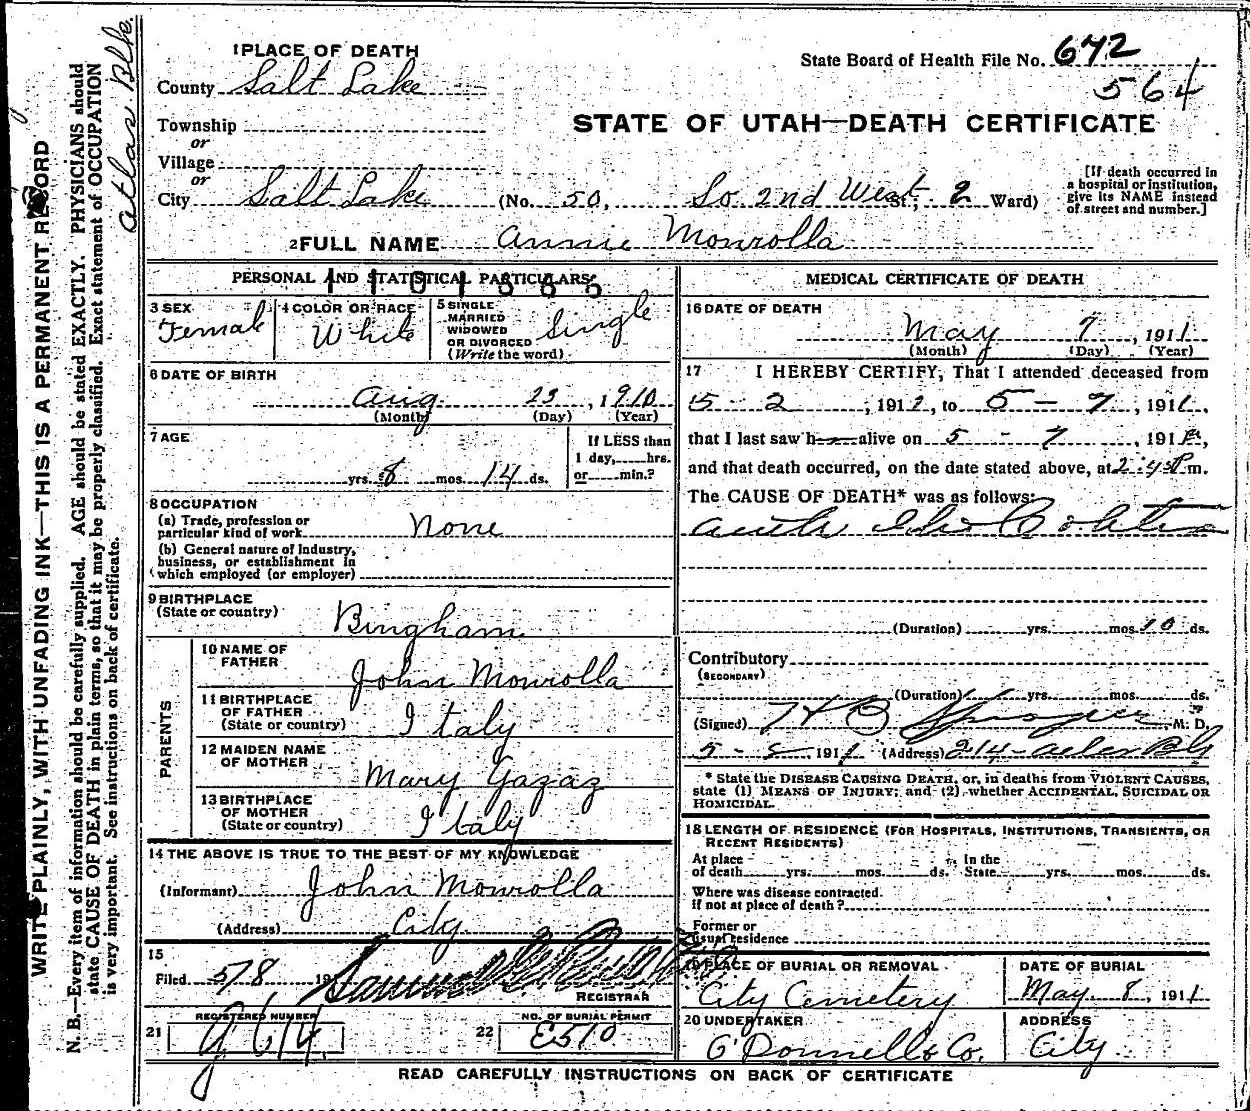 1 PLACE OF DEATH
County Salt Lake
State Board of Health File No. 642
564
Township
or
Village
or
City Salt Lake (No. 50, So 2nd West St; 2 Ward)
STATE OF UTAH—DEATH CERTIFICATE
[If death occurred in
a hospital or institution,
give its NAME instead
of street and number.]
2 FULL NAME Annie Monrolla
PERSONAL AND STATISTICAL PARTICULARS
3 SEX Female
4 COLOR OR RACE White
5 SINGLE
MARRIED
WIDOWED
OR DIVORCED
(Write the word) Single
6 DATE OF BIRTH
Aug 23, 1910
(Month) (Day) (Year)
7 AGE
yrs. 8 mos. 14 ds.
If LESS than
1 day, hrs.
or min.?
8 OCCUPATION
(a) Trade, profession or
particular kind of work None
(b) General nature of Industry,
business, or establishment in
which employed (or employer)
9 BIRTHPLACE
(State or country) Bingham
PARENTS
10 NAME OF
FATHER John Monrolla
11 BIRTHPLACE
OF FATHER
(State or country) Italy
12 MAIDEN NAME
OF MOTHER Mary Gazaz
13 BIRTHPLACE
OF MOTHER
(State or country) Italy
14 THE ABOVE IS TRUE TO THE BEST OF MY KNOWLEDGE
(Informant) John Monrolla
(Address) City
15
Filed 5/8 19
REGISTRAR
REGISTERED NUMBER
21 G 614
NO. OF BURIAL PERMIT
22 E510
MEDICAL CERTIFICATE OF DEATH
16 DATE OF DEATH
May 7, 1911
(Month) (Day) (Year)
17 I HEREBY CERTIFY, That I attended deceased from
5 - 2, 191 , to 5 - 7, 1911,
that I last saw h alive on 5 - 7, 191 ,
and that death occurred, on the date stated above, at m.
The CAUSE OF DEATH* was as follows:
(Duration) yrs. mos. 10 ds.
Contributory
(SECONDARY)
(Duration) yrs. mos. ds.
(Signed) M. D.
5 - 8 1911 (Address) 214
* State the DISEASE CAUSING DEATH, or, in deaths from VIOLENT CAUSES,
state (1) MEANS OF INJURY; and (2) whether ACCIDENTAL, SUICIDAL OR
HOMICIDAL.
18 LENGTH OF RESIDENCE (FOR HOSPITALS, INSTITUTIONS, TRANSIENTS, OR
RECENT RESIDENTS)
At place
of death yrs. mos. ds.
In the
State yrs. mos. ds.
Where was disease contracted.
if not at place of death?
Former or
usual residence
19 PLACE OF BURIAL OR REMOVAL
City Cemetery
DATE OF BURIAL
May 8, 1911
20 UNDERTAKER
O'Donnell & Co.
ADDRESS
City
READ CAREFULLY INSTRUCTIONS ON BACK OF CERTIFICATE
WRITE PLAINLY, WITH UNFADING INK—THIS IS A PERMANENT RECORD
N. B.—Every item of information should be carefully supplied. AGE should be stated EXACTLY. PHYSICIANS should
state CAUSE OF DEATH in plain terms, so that it may be properly classified. Exact statement of OCCUPATION
is very important. See instructions on back of certificate.
Atlas Blk.